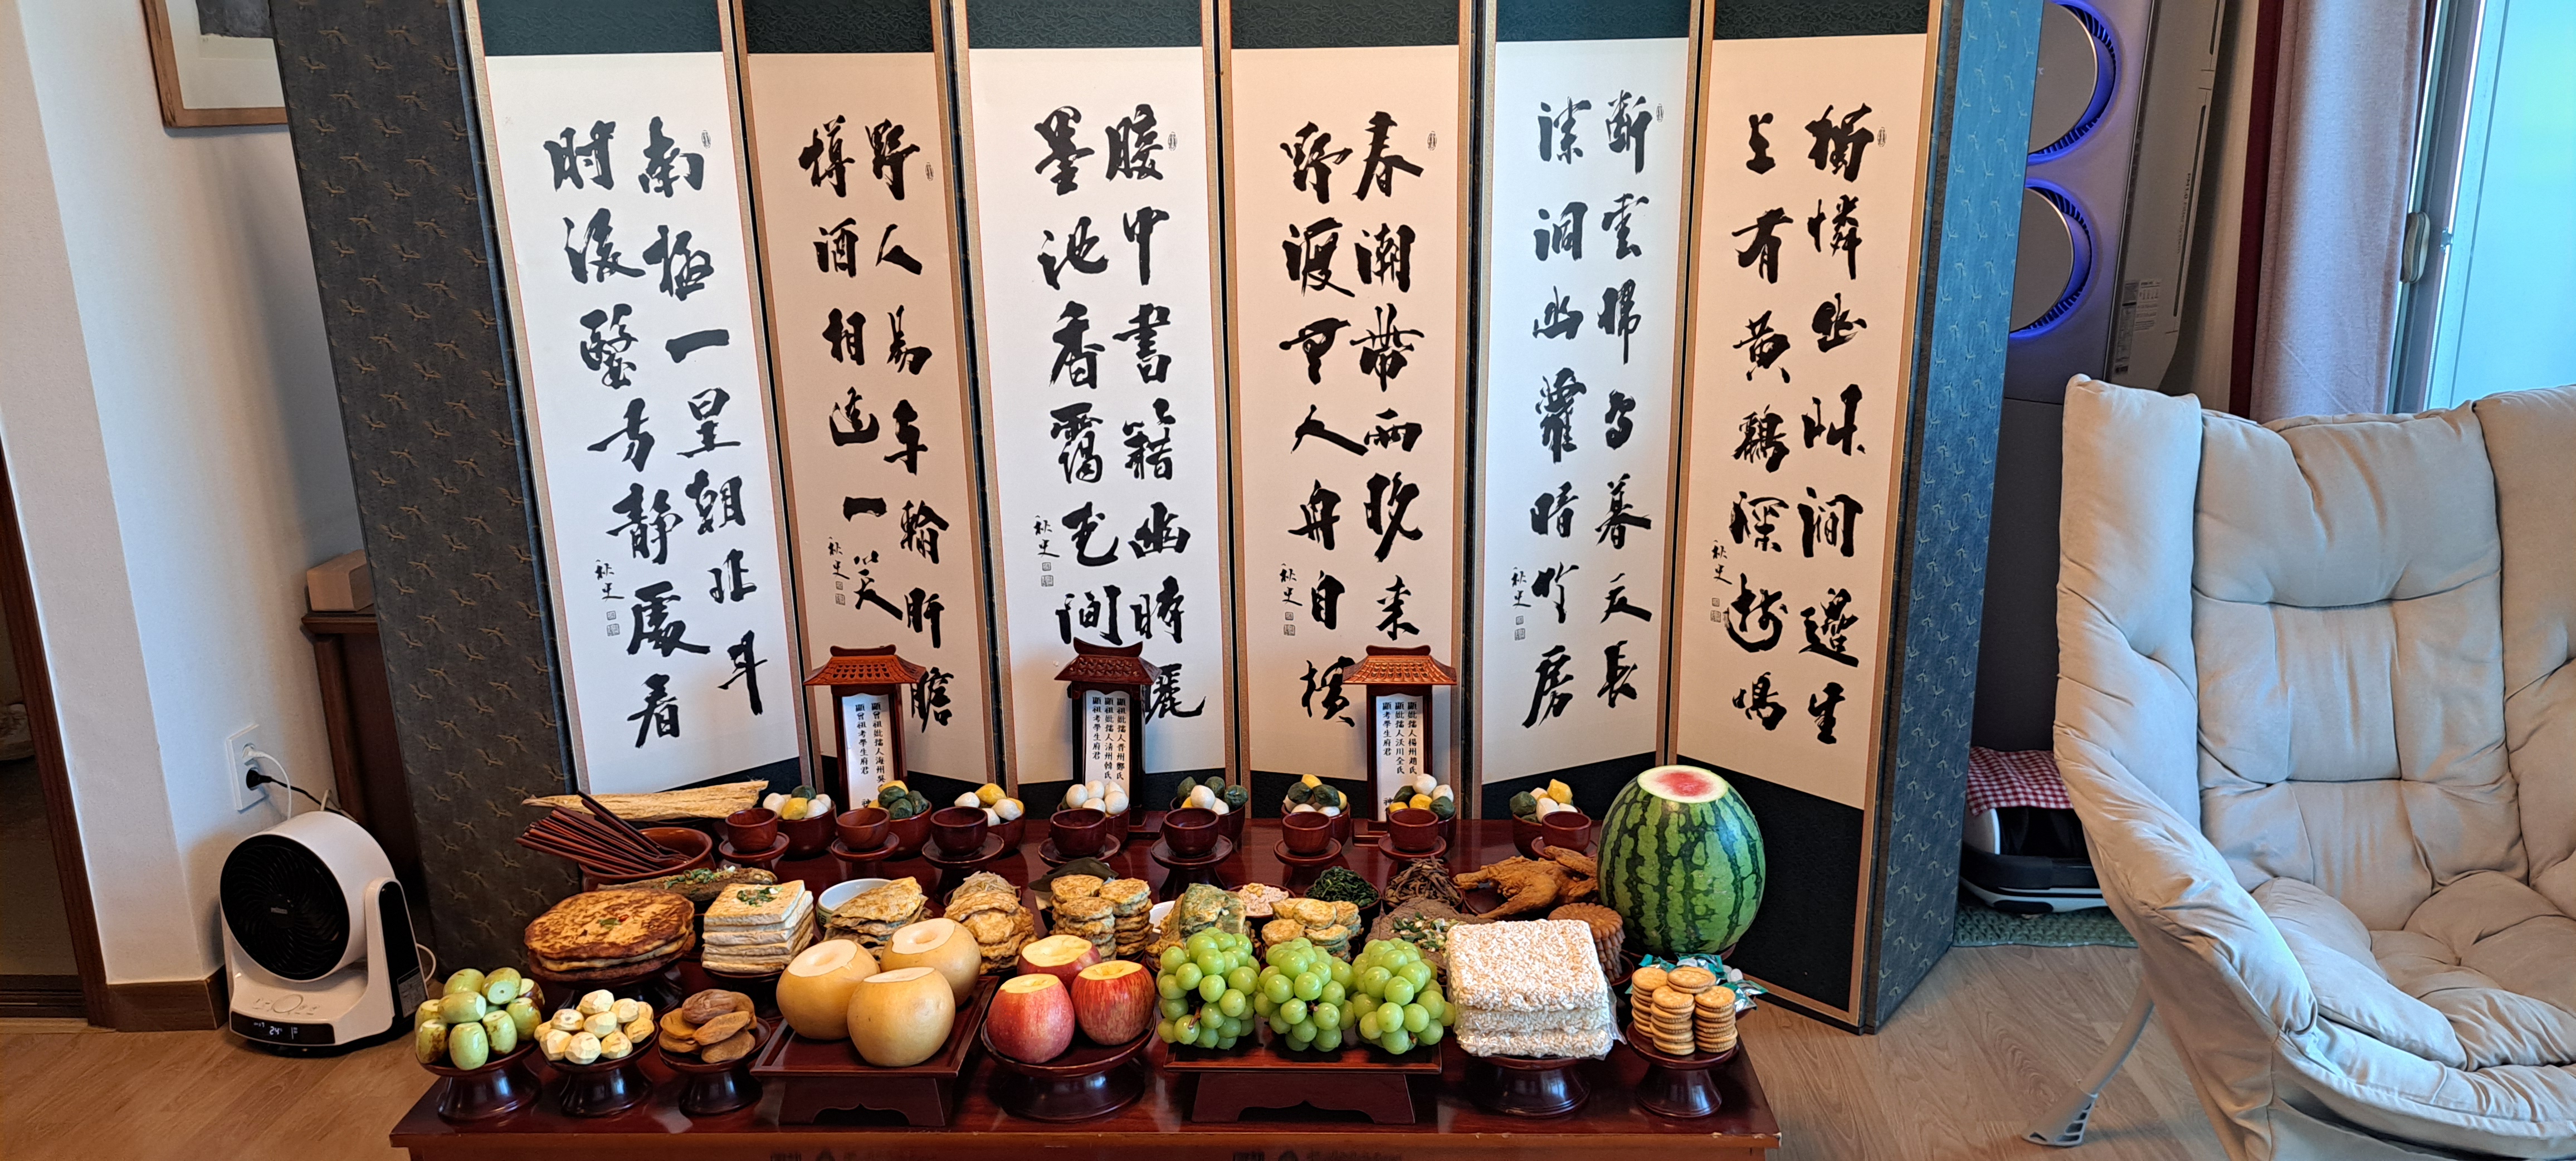 獨憐幽艸澗邊生
上有黃鸝深樹鳴
秋史
斷雲歸鳥暮天長
深洞幽蘿暗竹房
秋史
春潮帶雨晚來
野渡無人舟自橫
秋史
腹中書籍幽時曬
墨池香靄花間
秋史
野人易與輸肝膽
樽酒相逢一笑
秋史
南極一星朝北斗
肘後醫方靜處看
秋史
顯妣孺人楊州趙氏
顯妣孺人沃川全氏
顯考學生府君 神
顯祖妣孺人晋州鄭氏
顯祖妣孺人清州韓氏
顯祖考學生府君
顯曾祖妣孺人海州吳
顯曾祖考學生府君 神
24